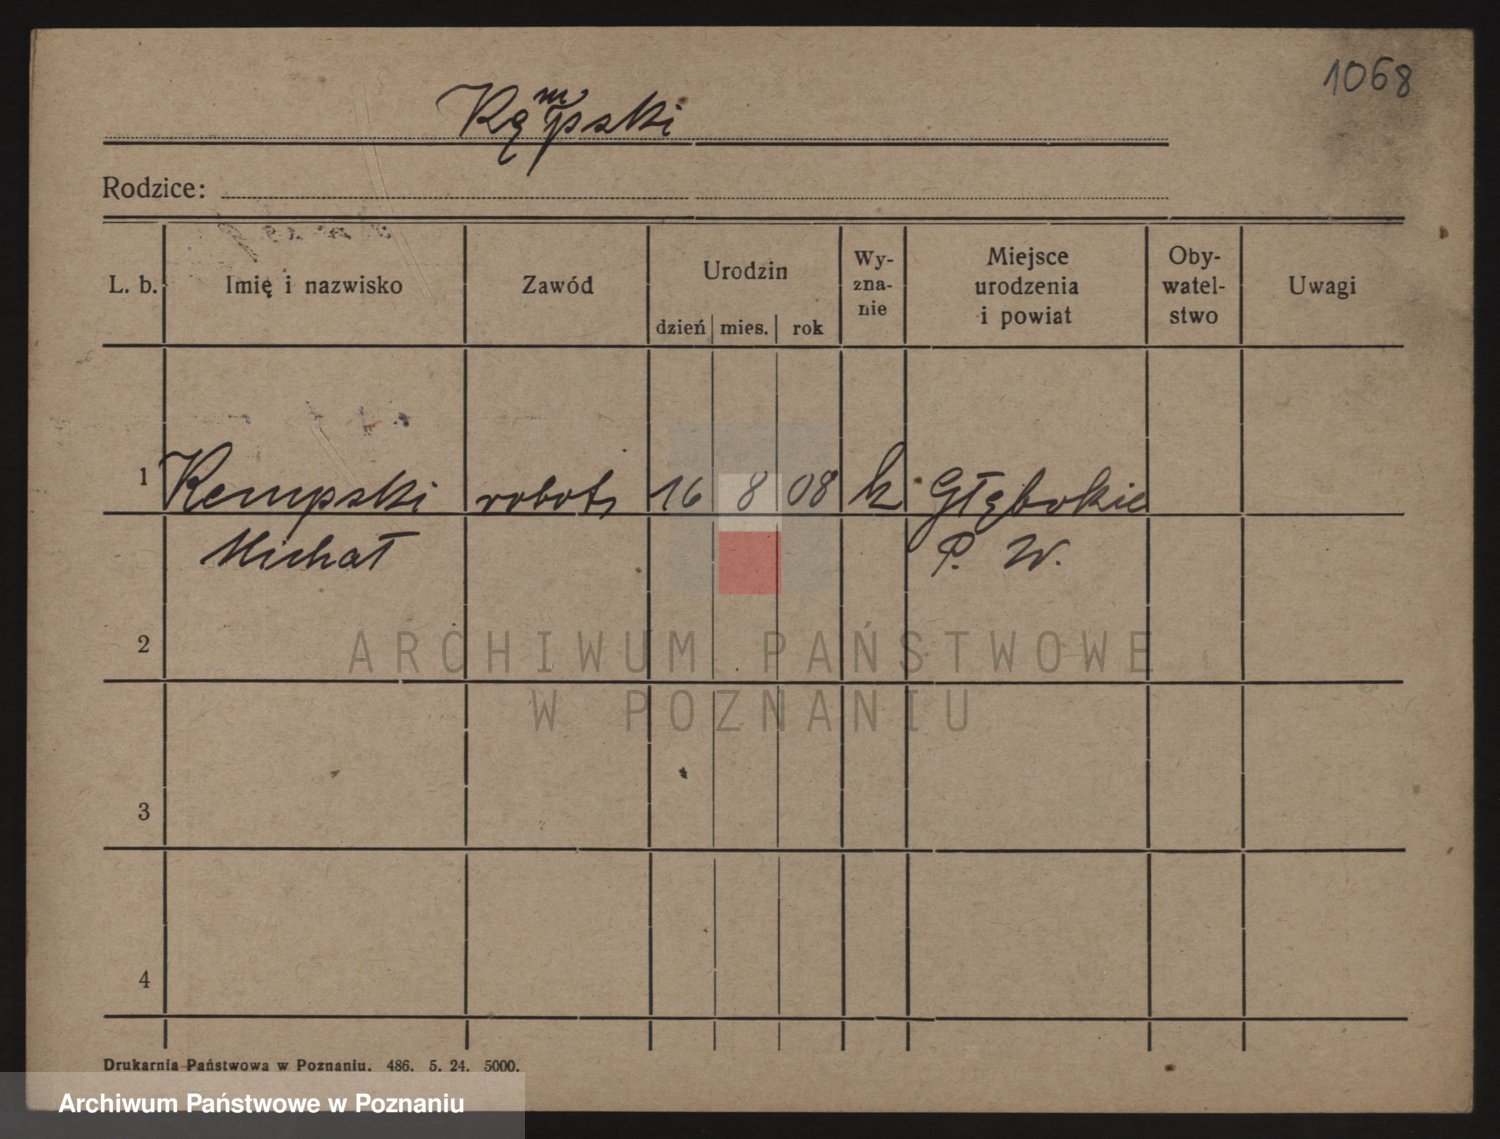 1068
Kęmpski
Rodzice:
L. b. Imię i nazwisko Zawód Urodzin dzień mies. rok Wy-zna-nie Miejsce urodzenia i powiat Oby-watel-stwo Uwagi
1 Kempski robotn 16 8 08 k Głębokie
Michał P. W.
2
ARCHIWUM PAŃSTWOWE
W POZNANIU
3
4
Drukarnia Państwowa w Poznaniu. 486. 5. 24. 5000.
Archiwum Państwowe w Poznaniu